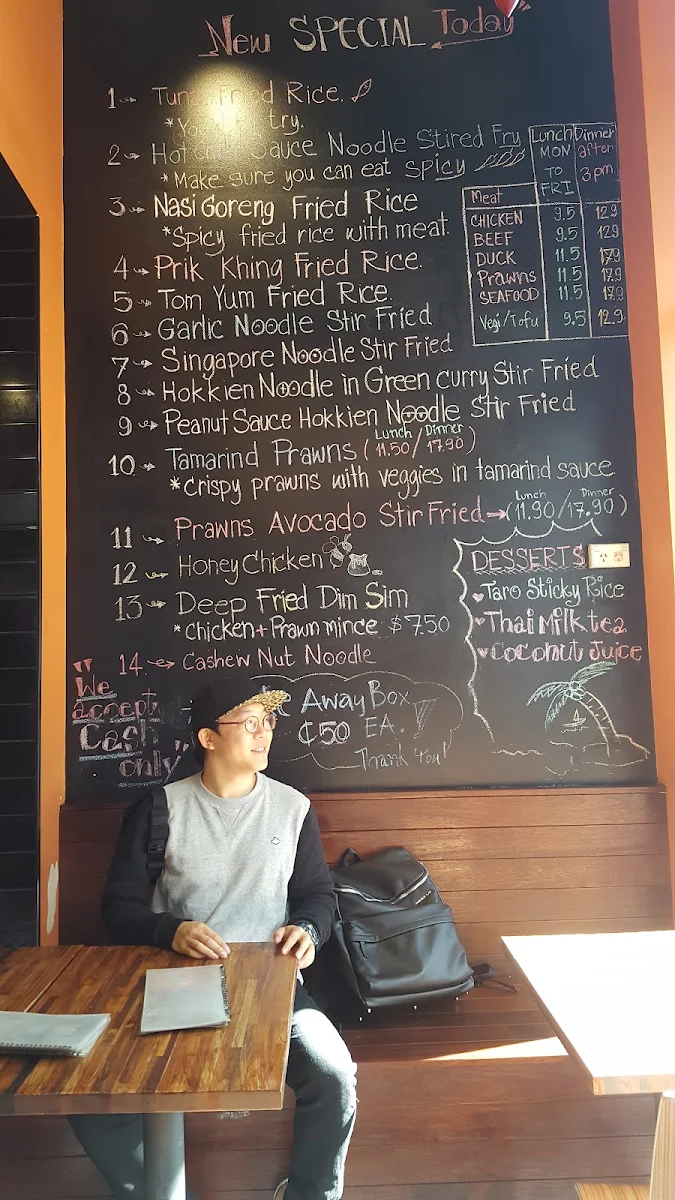 New SPECIAL Today
1 Tuna Fried Rice.
*You try.
2 Hot Sauce Noodle Stired Fry
*Make sure you can eat spicy
3 Nasi Goreng Fried Rice
*Spicy fried rice with meat.
4 Prik Khing Fried Rice.
5 Tom Yum Fried Rice.
6 Garlic Noodle Stir Fried
7 Singapore Noodle Stir Fried
8 Hokkien Noodle in Green curry Stir Fried
9 Peanut Sauce Hokkien Noodle Stir Fried
10 Tamarind Prawns (Lunch 11.50/Dinner 17.90)
*crispy prawns with veggies in tamarind sauce
11 Prawns Avocado Stir Fried (Lunch 11.90/Dinner 17.90)
12 Honey Chicken
13 Deep Fried Dim Sim
*chicken+Prawn mince $7.50
14 Cashew Nut Noodle
Lunch MON TO FRI
Dinner after 3pm.
Meat
CHICKEN 9.5 12.9
BEEF 9.5 12.9
DUCK 11.5 17.9
Prawns 11.5 17.9
SEAFOOD 11.5 17.9
Vegi/Tofu 9.5 12.9
DESSERTS
Taro Sticky Rice
Thai Milk tea
Coconut Juice
"We
accept
Cash
only"
Away Box
¢50 EA.
Thank You!